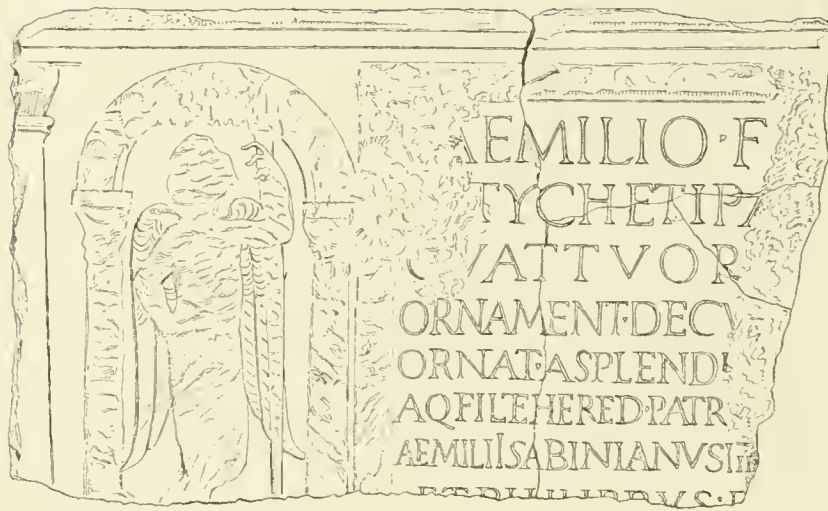 AEMILIO·F
TYCHETI
VATTVOR
ORNAMENT·DECV
ORNAT·ASPLENDI
AQFILETHERED·PATR
AEMILIISABINIANVS